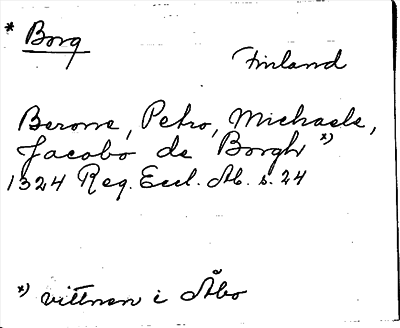 * Borg
Finland
Berone, Petro, Michaele,
Jacobo de Borgh *)
1324 Reg. Eccl. Ab. s. 24
*) vittnen i Åbo